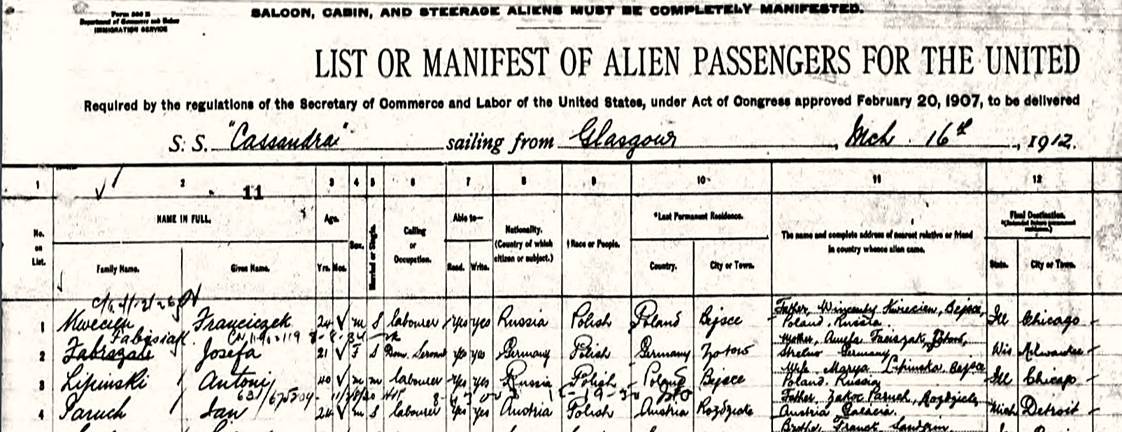 Form 500 B
Department of Commerce and Labor
IMMIGRATION SERVICE
SALOON, CABIN, AND STEERAGE ALIENS MUST BE COMPLETELY MANIFESTED.
LIST OR MANIFEST OF ALIEN PASSENGERS FOR THE UNITED
Required by the regulations of the Secretary of Commerce and Labor of the United States, under Act of Congress approved February 20, 1907, to be delivered
S. S. "Cassandra" sailing from Glasgow, Mch 16th, 1912.
1 2 3 4 5 6 7 8 9 10 11 12
11
No. on List.
NAME IN FULL.
Family Name. Given Name.
Age.
Yrs. Mos.
Sex.
Married or Single.
Calling or Occupation.
Able to—
Read. Write.
Nationality. (Country of which citizen or subject.)
†Race or People.
*Last Permanent Residence.
Country. City or Town.
The name and complete address of nearest relative or friend in country whence alien came.
Final Destination.
State. City or Town.
1 Franciczek 24 m S labourer Yes Yes Russia Polish Poland Bejsce Father, Bejsce, Poland, Russia Ill Chicago
Fabysiak
2 Josefa 21 F S Dom. Servant yes yes Germany Polish Germany Mother, Germany Wis Milwaukee
3 Lipinski Antoni 40 m m labourer Yes Yes Russia Polish Poland Bejsce Wife Marya Lipinska, Bejsce Poland. Russia Ill Chicago
4 Paruch Jan 24 m S labourer Yes Yes Austria Polish Austria Father, Paruch, Austria Mich Detroit
Franck